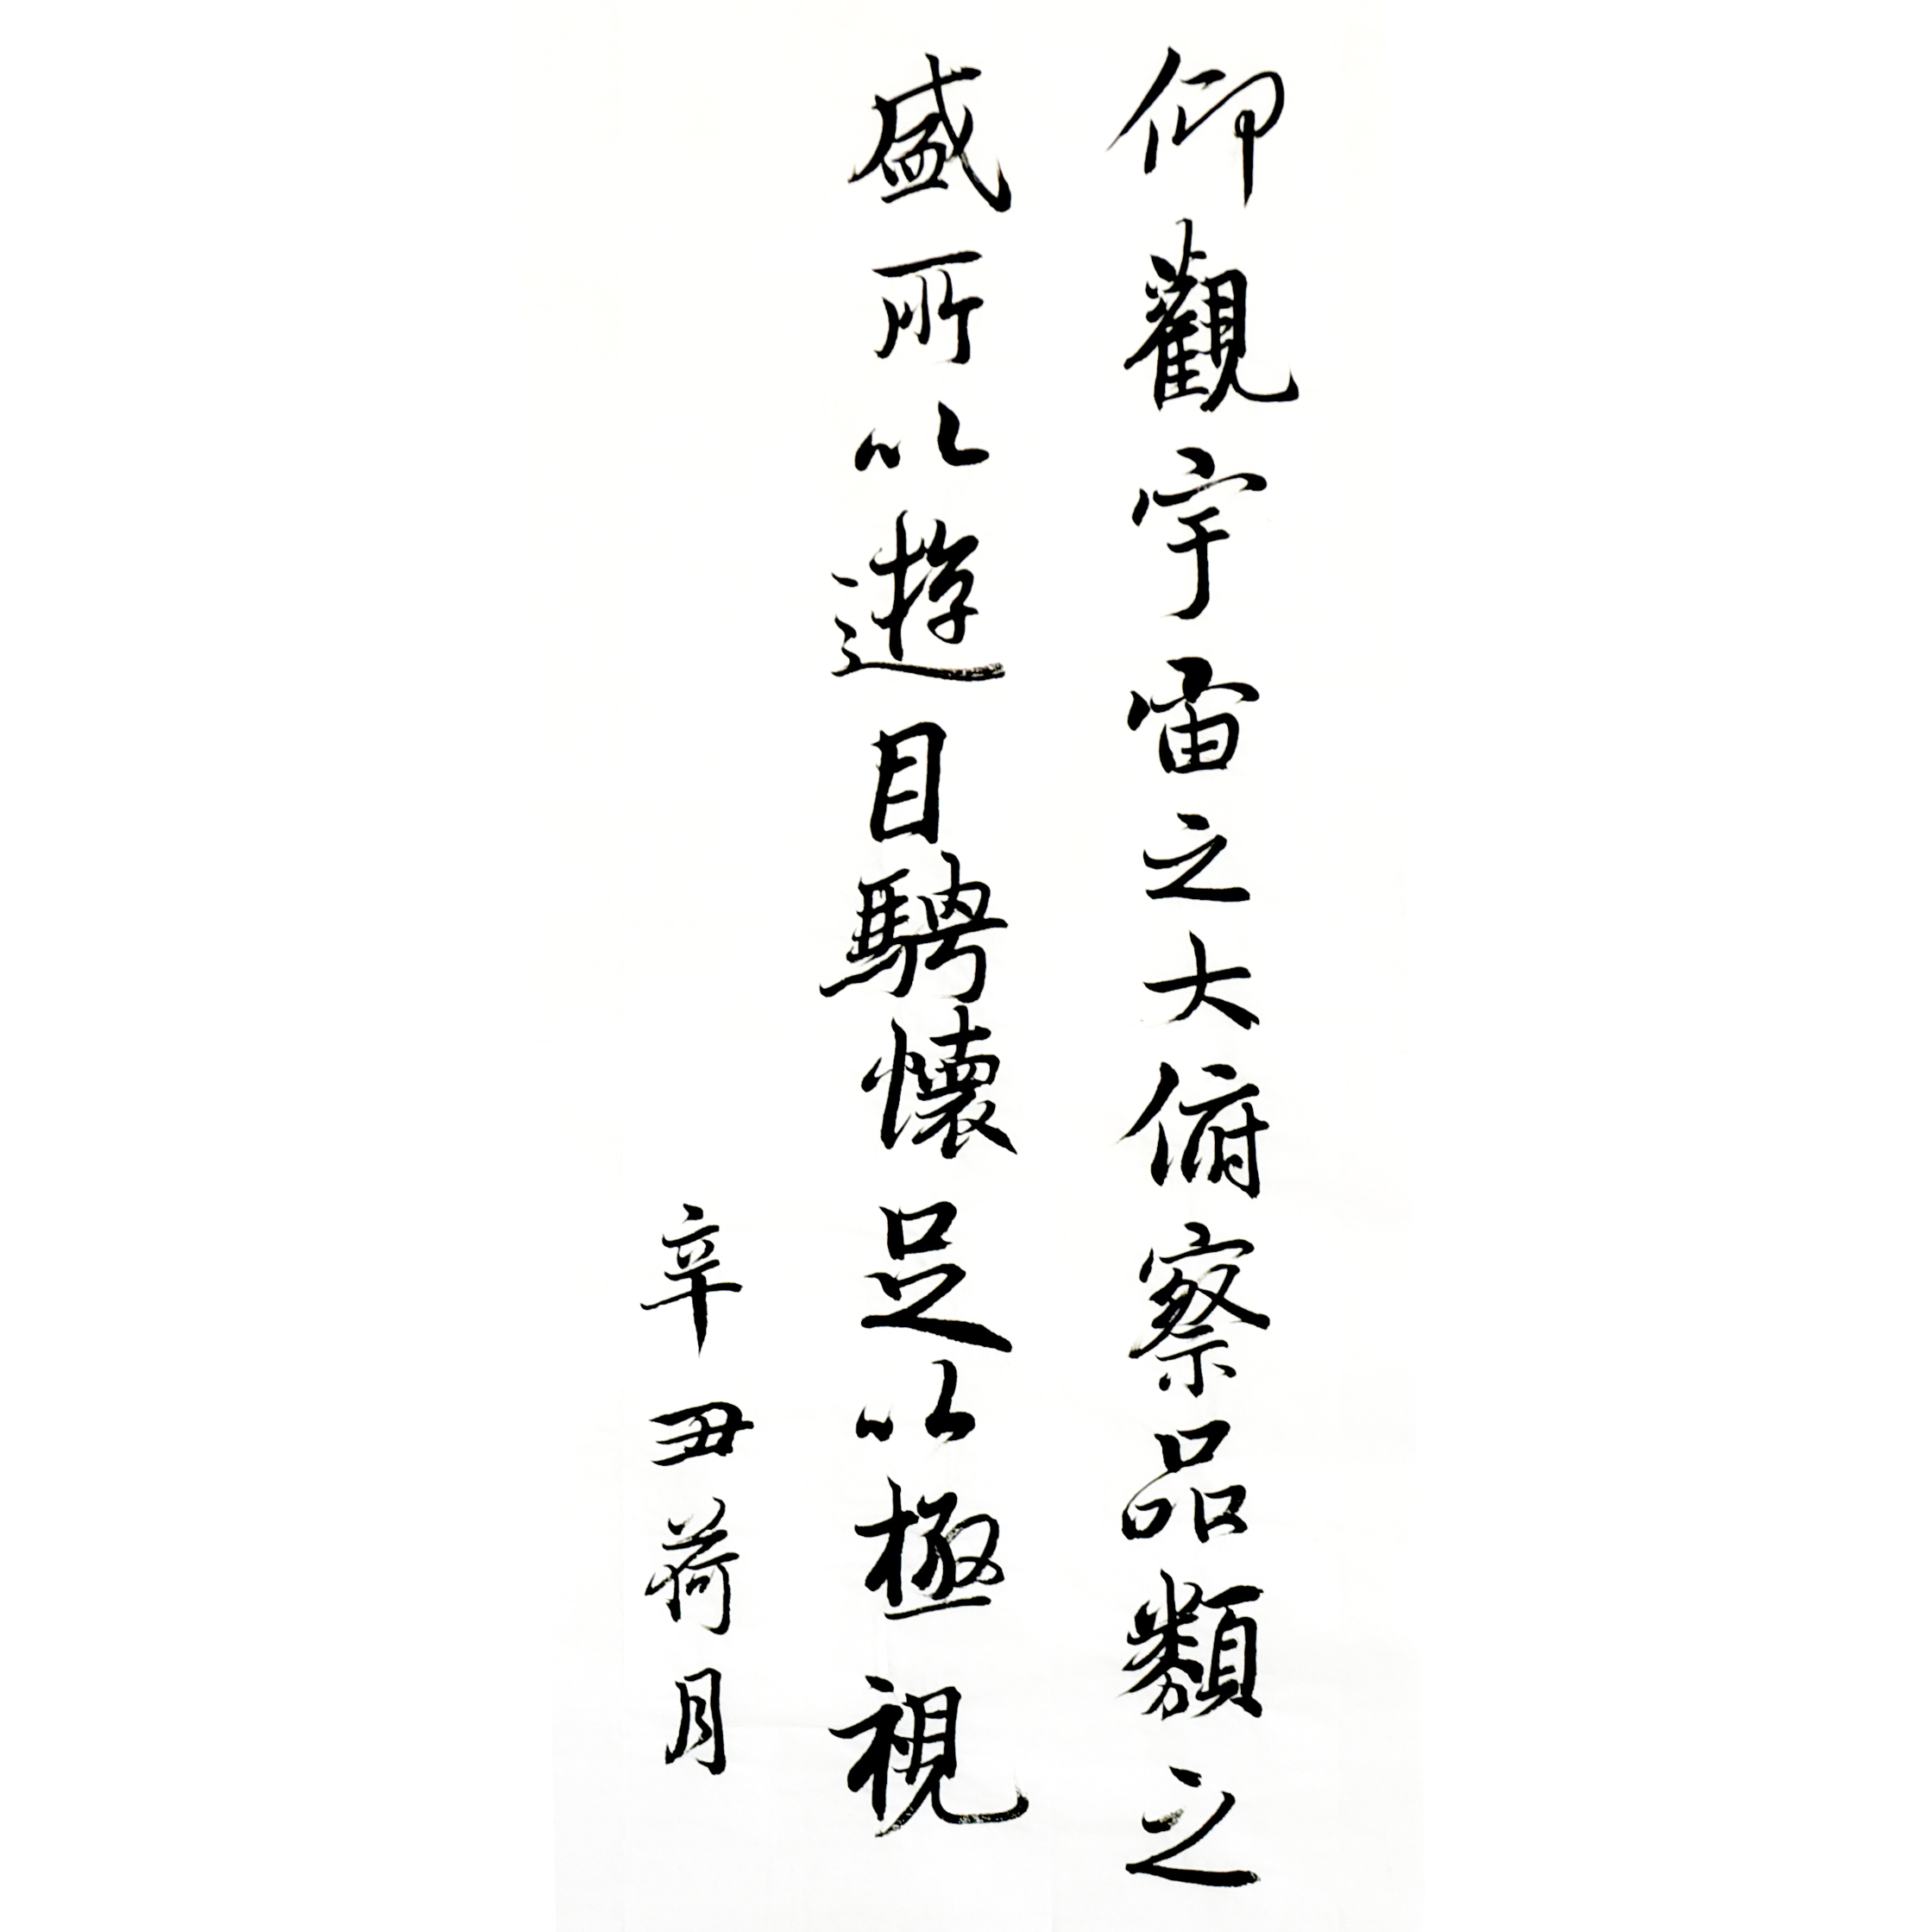 仰觀宇宙之大俯察品類之
盛所以遊目騁懷足以極視
辛丑荷月